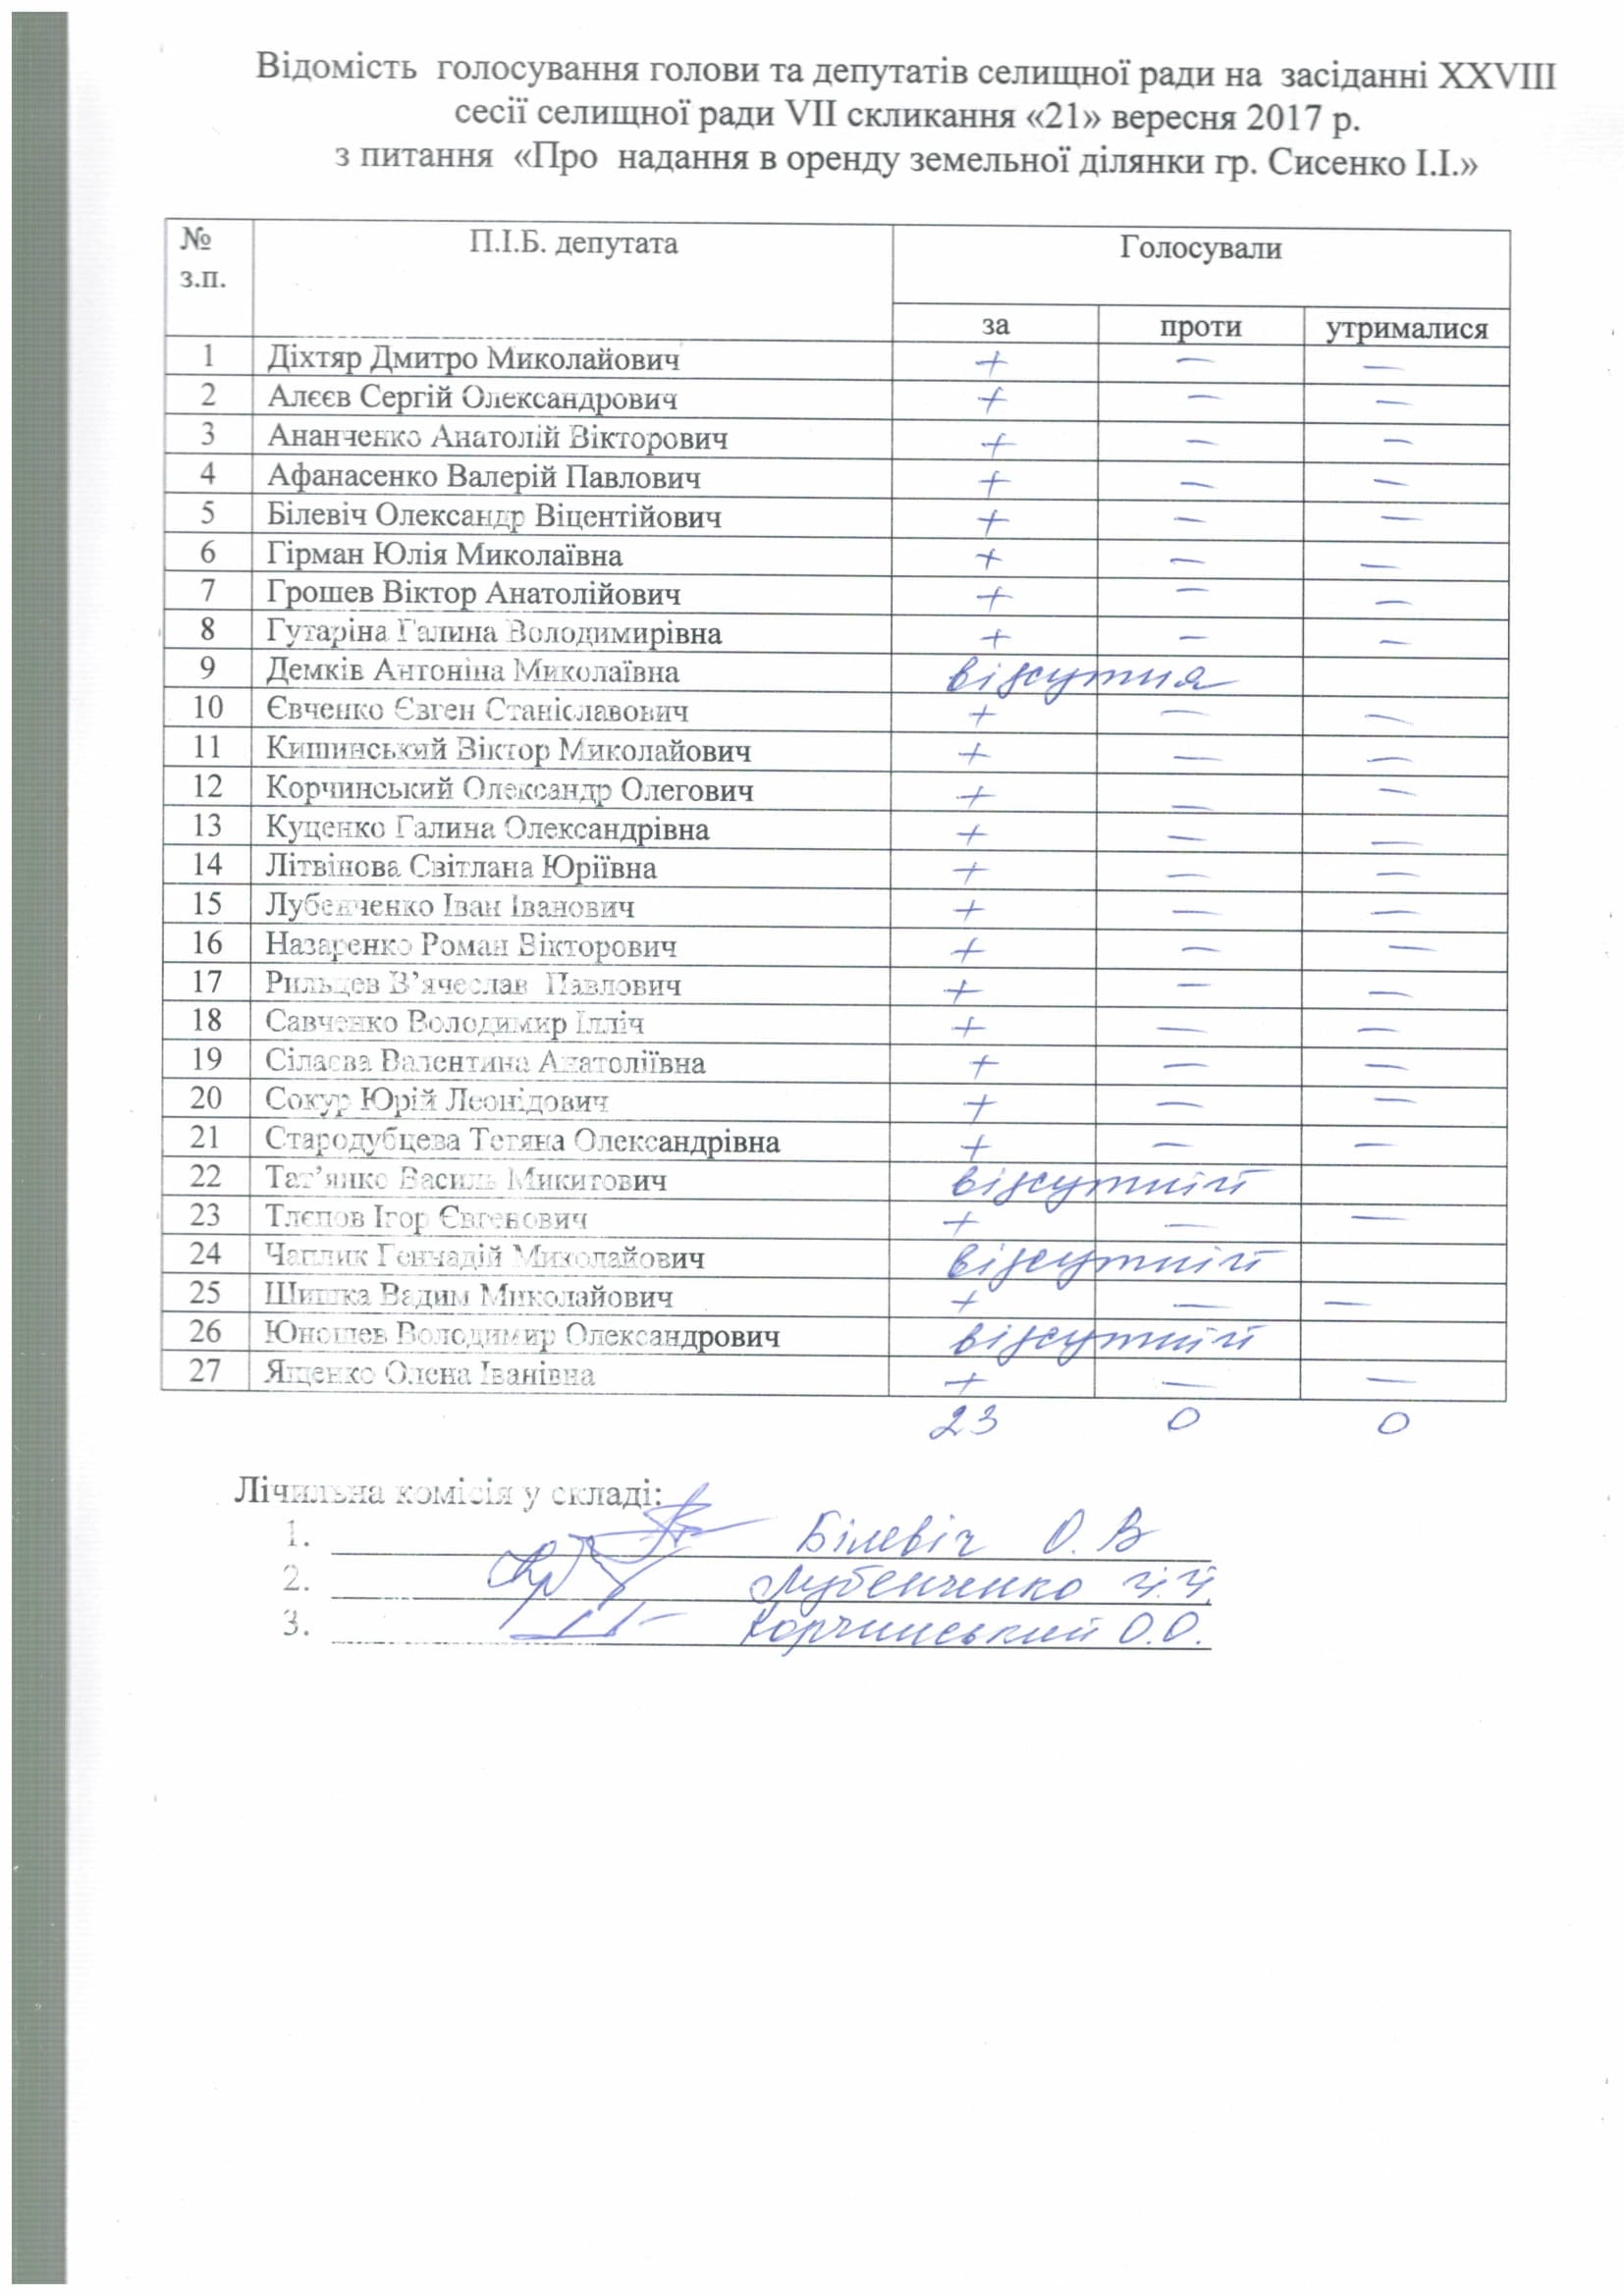 Відомість голосування голови та депутатів селищної ради на засіданні XXVIII
сесії селищної ради VII скликання «21» вересня 2017 р.
з питання «Про надання в оренду земельної ділянки гр. Сисенко І.І.»
№ з.п. П.І.Б. депутата Голосували
за проти утрималися
1 Діхтяр Дмитро Миколайович + — —
2 Алєєв Сергій Олександрович + — —
3 Ананченко Анатолій Вікторович + — —
4 Афанасенко Валерій Павлович + — —
5 Білевіч Олександр Віцентійович + — —
6 Гірман Юлія Миколаївна + — —
7 Грошев Віктор Анатолійович + — —
8 Гутаріна Галина Володимирівна + — —
9 Демків Антоніна Миколаївна відсутня
10 Євченко Євген Станіславович + — —
11 Кишинський Віктор Миколайович + — —
12 Корчинський Олександр Олегович + — —
13 Куценко Галина Олександрівна + — —
14 Літвінова Світлана Юріївна + — —
15 Лубенченко Іван Іванович + — —
16 Назаренко Роман Вікторович + — —
17 Рильцев В’ячеслав Павлович + — —
18 Савченко Володимир Ілліч + — —
19 Сілаєва Валентина Анатоліївна + — —
20 Сокур Юрій Леонідович + — —
21 Стародубцева Тетяна Олександрівна + — —
22 Тат’янко Василь Микитович відсутній
23 Тлєпов Ігор Євгенович + — —
24 Чаплик Геннадій Миколайович відсутній
25 Шишка Вадим Миколайович + — —
26 Юношев Володимир Олександрович відсутній
27 Ященко Олена Іванівна + — —
23 0 0
Лічильна комісія у складі:
1. Білевіч О. В
2. Лубенченко І.І.
3. Корчинський О.О.